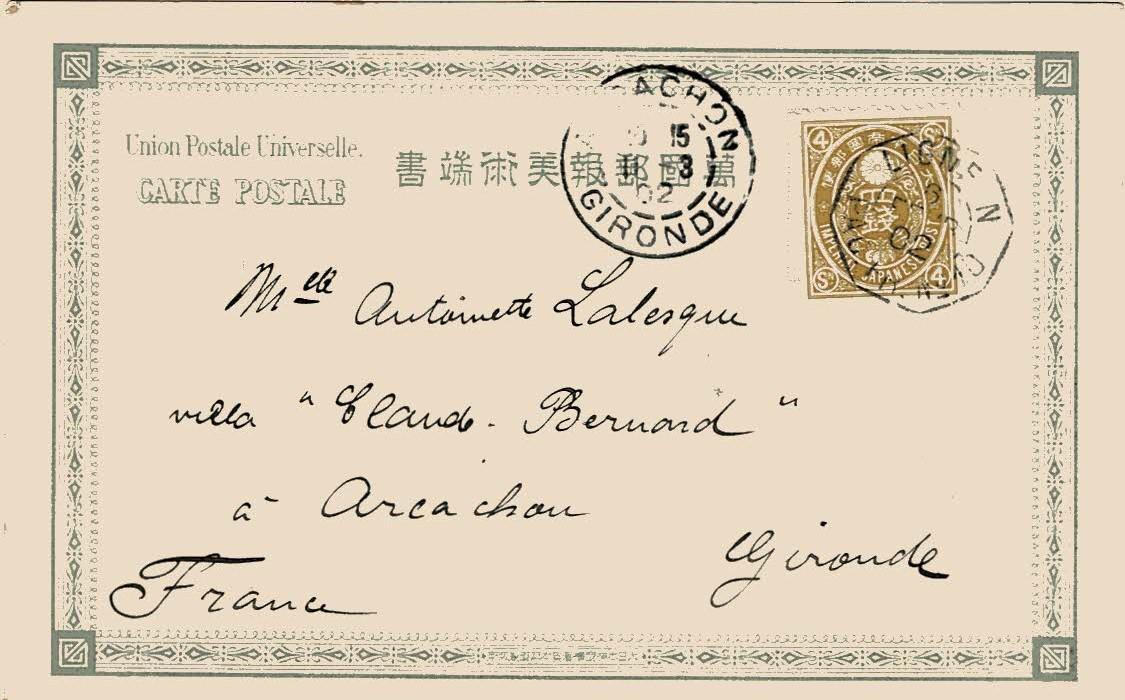 Union Postale Universelle.
CARTE POSTALE
書端術美報郵國萬
ACHON
15
3
02
GIRONDE
4 Sn
IMPERIAL JAPANESE POST
Sn 4
LIGNE N
02
No 10
Mlle Antoinette Lalesque
villa "Claude-Bernard"
à Arcachon
Gironde
France